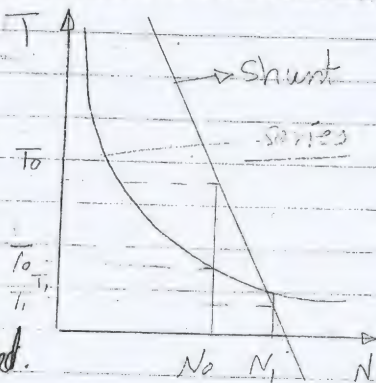 T
Shunt
series
To
To
T1
T1
ed.
No N1 N